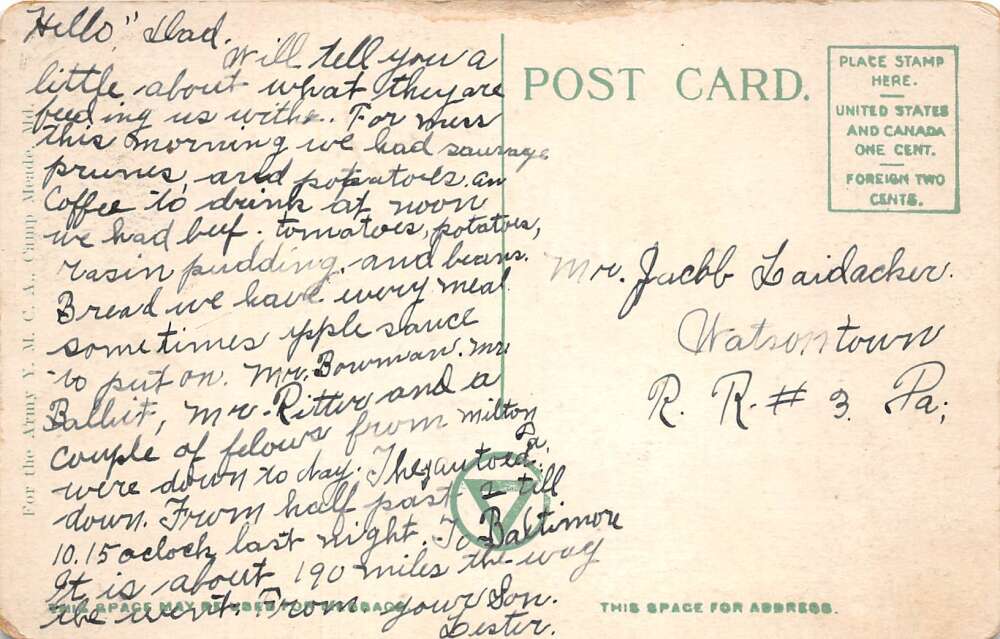 Hello," Dad.
Will tell you a
little about what they are
feeding us withe. For mess
this morning we had sausage
prunes, and potatoes, an
Coffee to drink at noon
we had beef. tomatoes, potatoes,
rasin pudding, and beans.
Bread we have every meal
sometimes apple sauce
to put on. Mr. Bowman. Mr
Balliit, Mr. Ritter and a
couple of felows from Milton
Pa.
were down to day. They autoed
down. From half past 2 till
10.15 oclock last night. To Baltimore
It is about 190 miles the way
the went. From. your Son.
Lester.
For the Army Y. M. C. A., Camp Meade, Md.
POST CARD.
PLACE STAMP
HERE.
UNITED STATES
AND CANADA
ONE CENT.
FOREIGN TWO
CENTS.
Mr. Jacob Laidacker.
Watsontown
R. R. # 3 Pa;
THIS SPACE MAY BE USED FOR MESSAGE
THIS SPACE FOR ADDRESS.